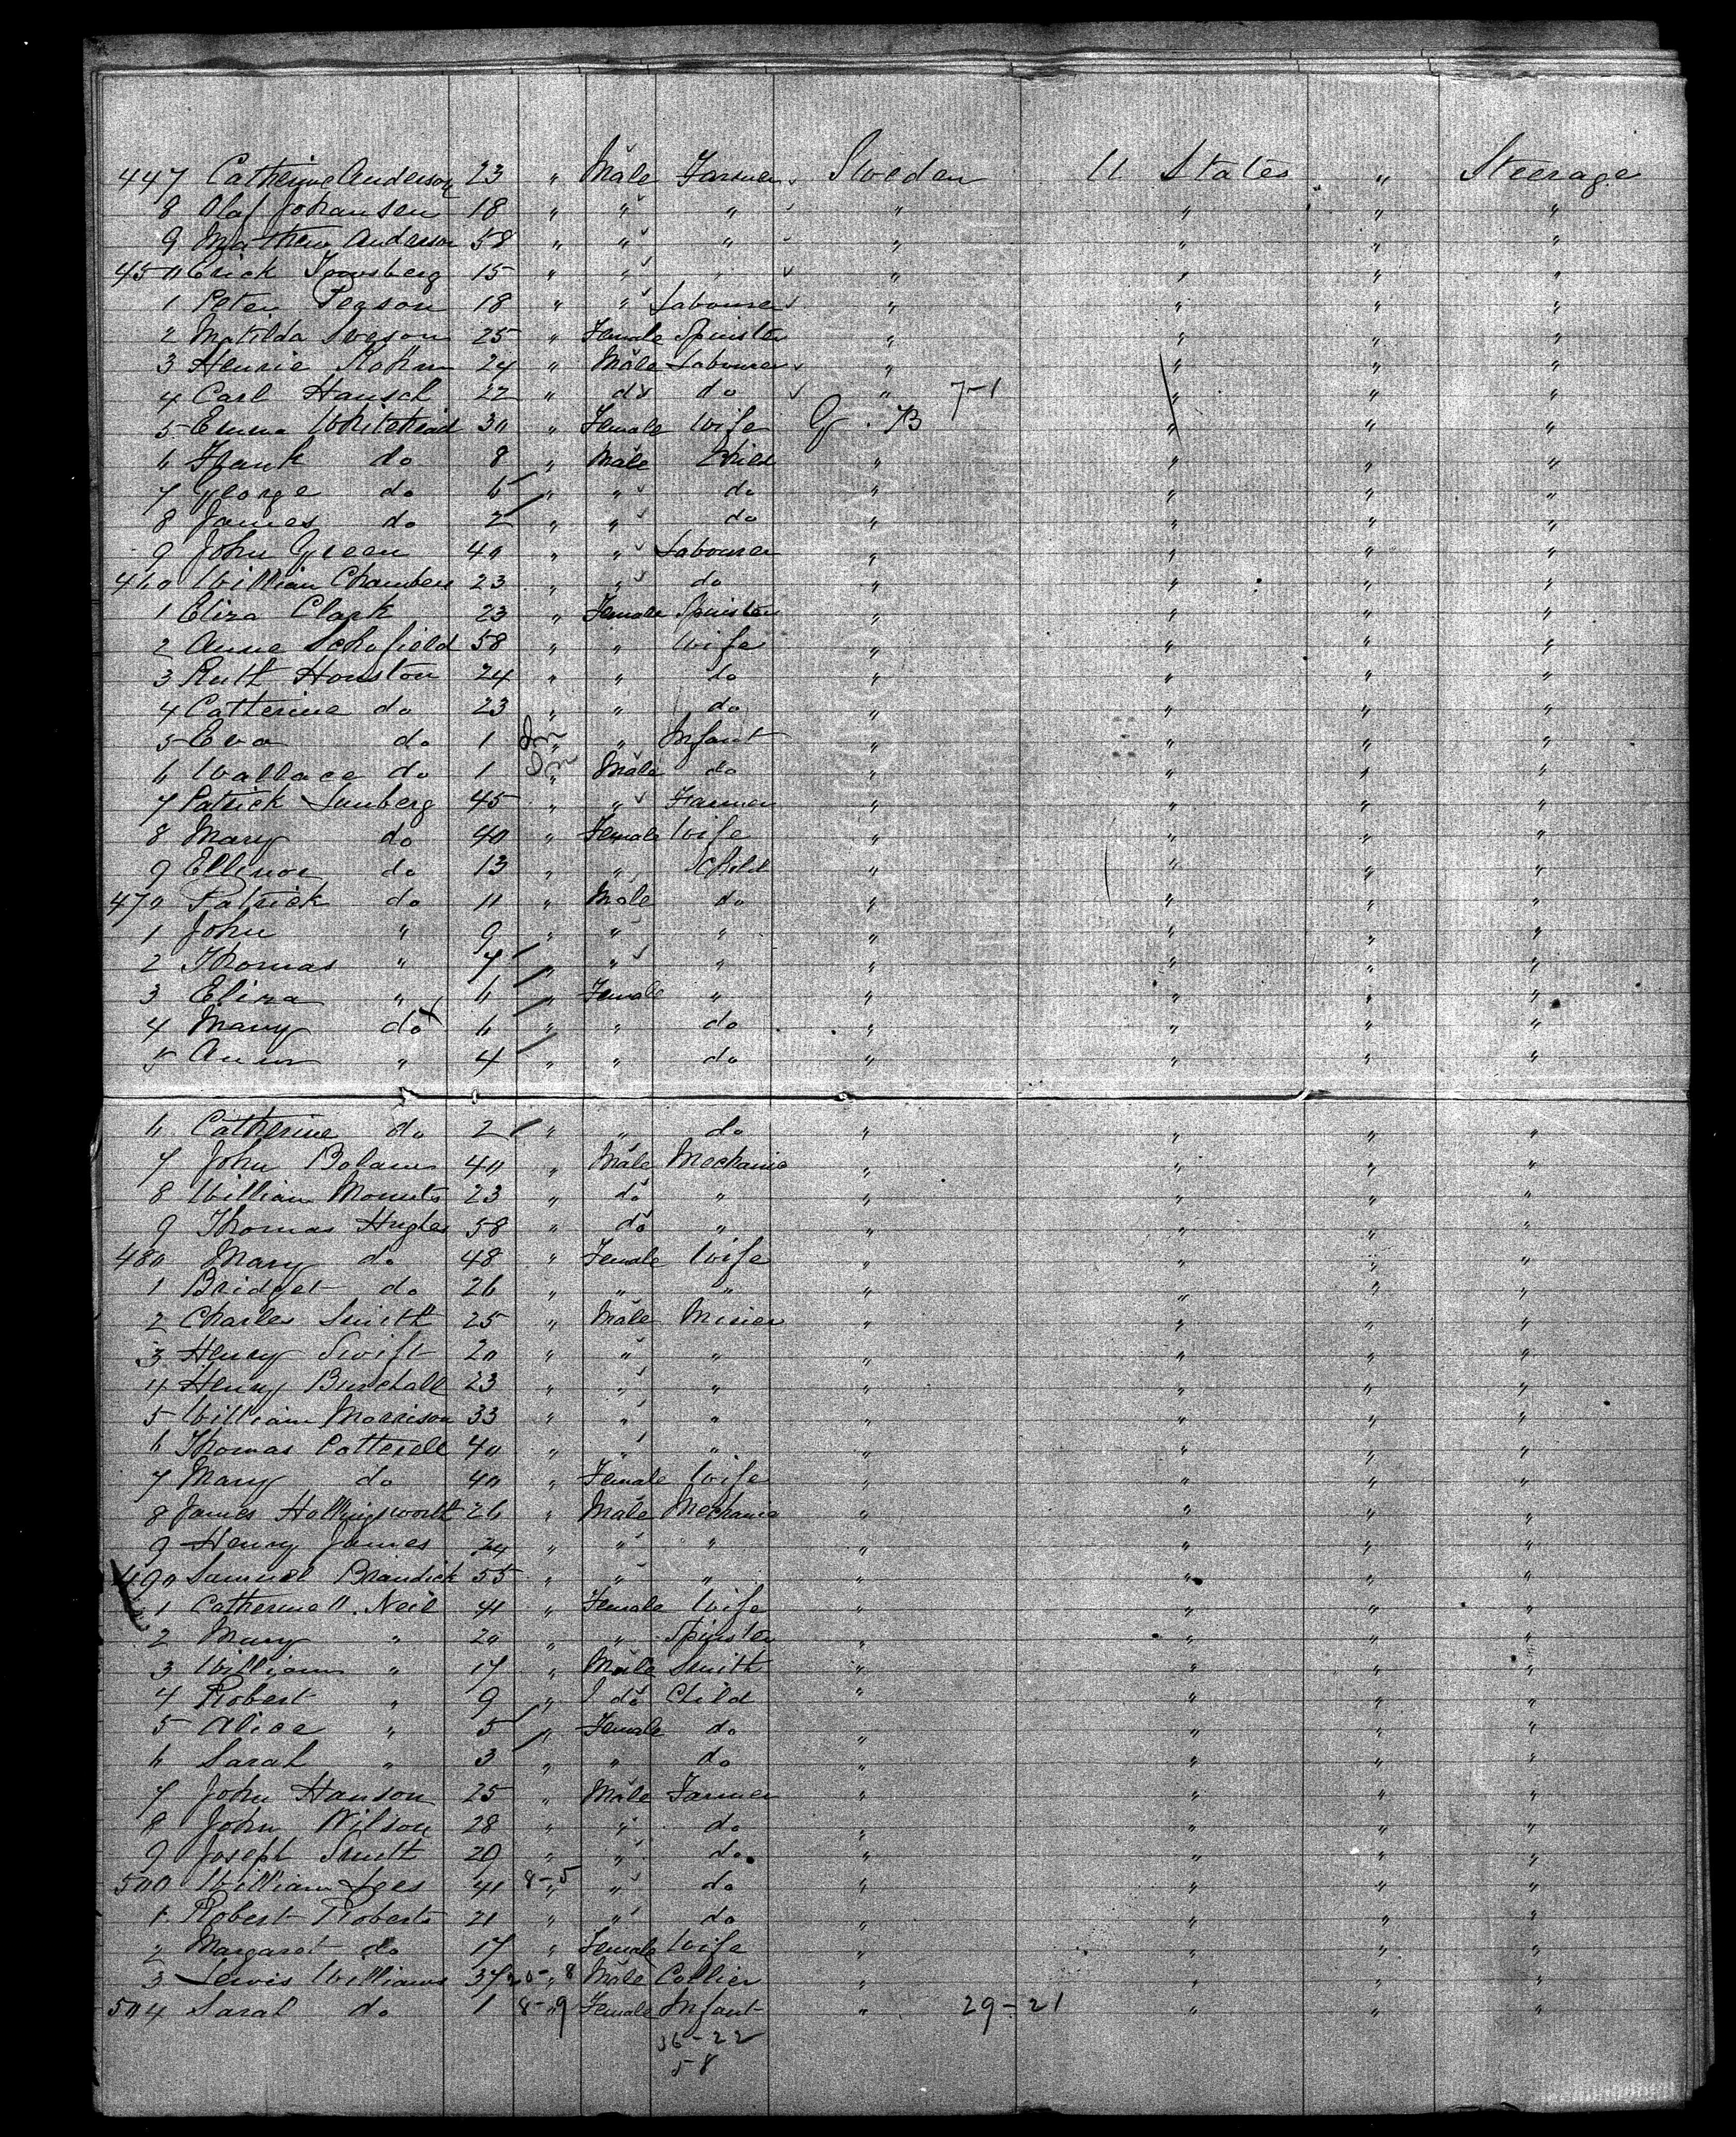 447 Catherine Anderson 23 " Male Farmer Sweden U States " Steerage
8 Olaf Johansen 18 " " " " " " "
9 Mathew Anderson 58 " " " " " " "
450 Erick 15 " " " " " " "
1 Peter Person 18 " " Labourer " " " "
2 Matilda 25 " Female Spinster " " " "
3 Henrie 24 " Male Labourer " " " "
4 Carl Hansch 22 " do do " 7-1 " " "
5 Emma Whitehead 30 " Female Wife G. B " " "
6 Frank do 8 " Male Child " " " "
7 George do 6 " " do " " " "
8 James do 2 " " do " " " "
9 John Green 40 " " Labourer " " " "
460 William Chambers 23 " " do " " " "
1 Eliza Clark 23 " Female Spinster " " " "
2 Annie Schofield 58 " " Wife " " " "
3 Ruth Houston 24 " " do " " " "
4 Catherine do 23 " " do " " " "
5 Eva do 1 " " Infant " " " "
6 Wallace do 1 " Male do " " " "
7 Patrick Lunberg 45 " " Farmer " " " "
8 Mary do 40 " Female Wife " " " "
9 Ellinor do 13 " " Child " " " "
470 Patrick do 11 " Male do " " " "
1 John " 9 " " " " " " "
2 Thomas " 7 " " " " " " "
3 Eliza " 6 " Female " " " " "
4 Mary do x 6 " " do " " " "
5 Ann " 4 " " do " " " "
6 Catherine do 2 " " do " " " "
7 John Bolam 40 " Male Mechanic " " " "
8 William 23 " do " " " " "
9 Thomas Hughes 58 " do " " " " "
480 Mary do 48 " Female Wife " " " "
1 Bridget do 26 " " " " " " "
2 Charles Smith 25 " Male Miner " " " "
3 Henry Swift 20 " " " " " " "
4 Henry Burchall 23 " " " " " " "
5 William Morrison 33 " " " " " " "
6 Thomas Cotterell 40 " " " " " " "
7 Mary do 40 " Female Wife " " " "
8 James Hollingsworth 26 " Male Mechanic " " " "
9 Henry James 24 " " " " " " "
490 Samuel Brandick 55 " " " " " " "
1 Catherine O. Neil 41 " Female Wife " " " "
2 Mary " 20 " " Spinster " " " "
3 William " 17 " Male Smith " " " "
4 Robert " 9 " do Child " " " "
5 Alice " 5 " Female do " " " "
6 Sarah " 3 " " do " " " "
7 John Hanson 25 " Male Farmer " " " "
8 John Wilson 28 " " do " " " "
9 Joseph Smith 29 " " do " " " "
500 William Lees 41 8-5 " " do " " " "
1 Robert Roberts 21 " " do " " " "
2 Margaret do 17 " Female Wife " " " "
3 Lewis Williams 37 20-8 " Male Collier " " " "
504 Sarah do 1 8-9 " Female Infant " 29-21 " " "
36-22
58